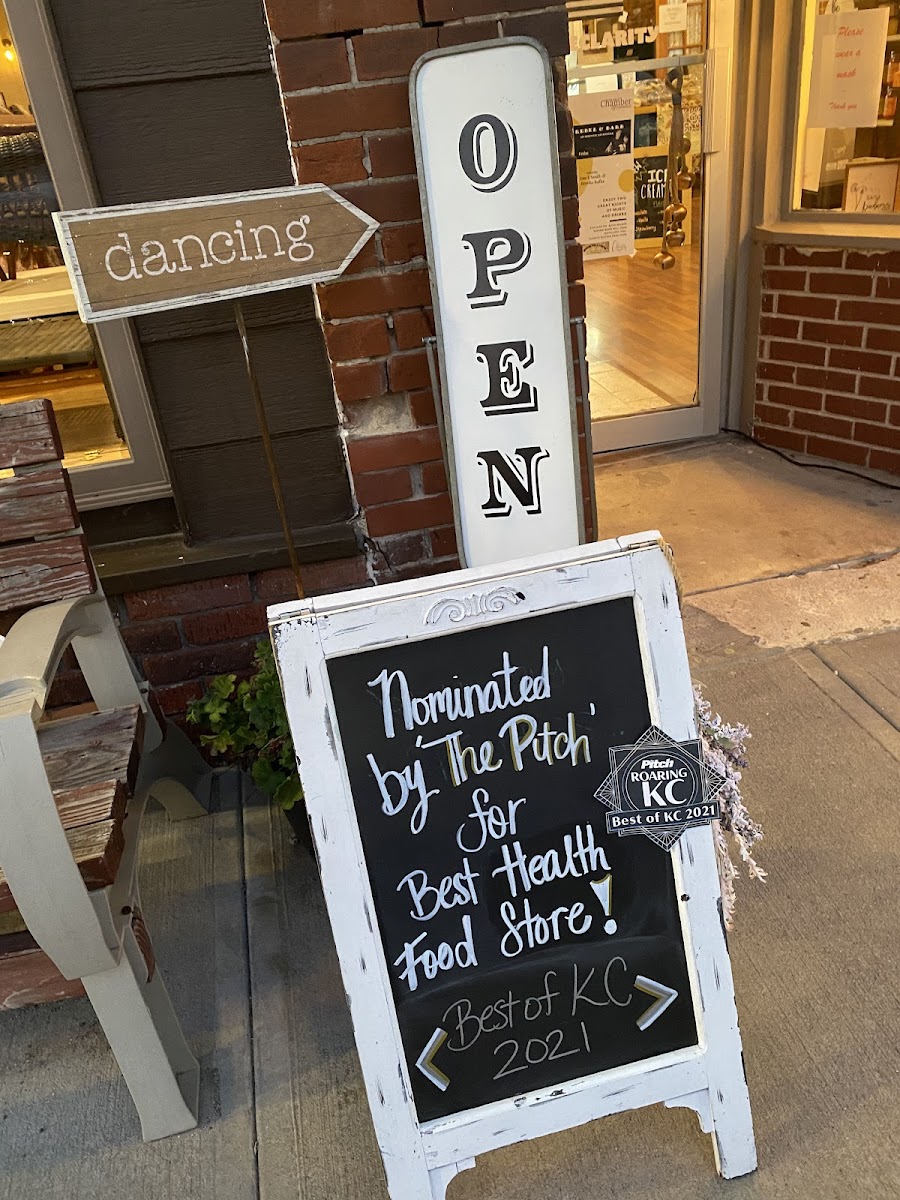 dancing
OPEN
CLARITY
Please
wear a
mask
Thank you
Chamber
ICE
CREAM
Nominated
by 'The Pitch'
for
Best Health
Food Store!
Best of KC
2021
Pitch
ROARING
KC
Best of KC 2021